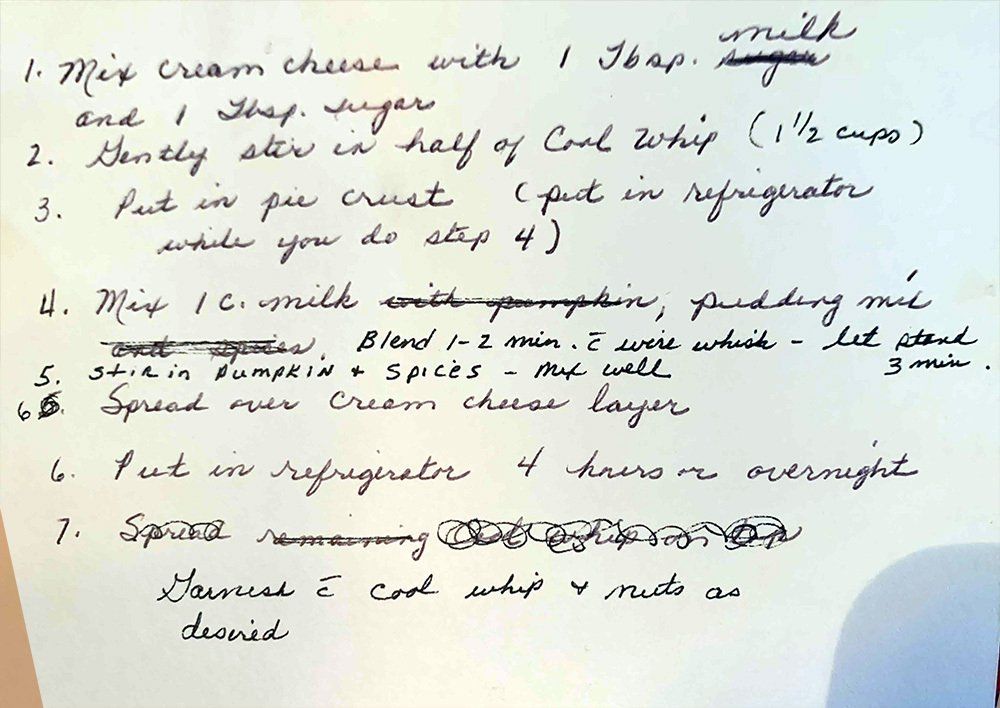 milk
1. Mix cream cheese with 1 Tbsp. sugar
and 1 Tbsp. sugar
2. Gently stir in half of Cool Whip (1 1/2 cups)
3. Put in pie crust (put in refrigerator
while you do step 4)
4. Mix 1 c. milk with pumpkin, pudding mix
and spices. Blend 1-2 min. c̄ wire whisk - let stand
5. Stir in pumpkin + spices - mix well 3 min.
6. Spread over cream cheese layer
6. Put in refrigerator 4 hours or overnight
7. Spread remaining Cool Whip on top
Garnish c̄ cool whip + nuts as
desired